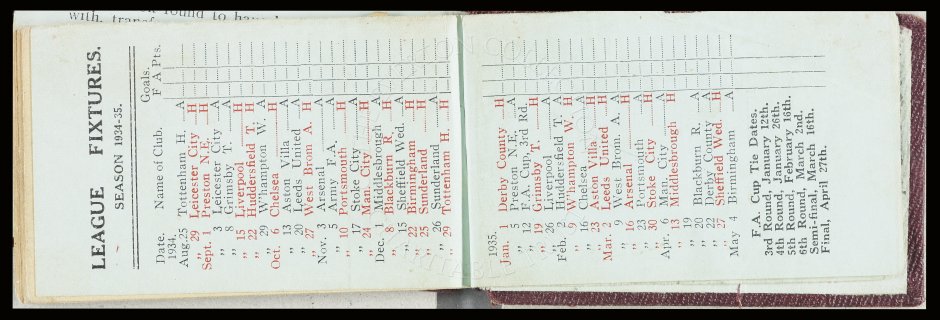 LEAGUE FIXTURES.
SEASON 1934-35.
Goals.
Date. Name of Club. F A Pts.
1934.
Aug. 25 Tottenham H. A
„ 29 Leicester City H
Sept. 1 Preston N.E. H
„ 3 Leicester City A
„ 8 Grimsby T. A
„ 15 Liverpool H
„ 22 Huddersfield T. H
„ 29 W'hampton W. A
Oct. 6 Chelsea H
„ 13 Aston Villa A
„ 20 Leeds United A
„ 27 West Brom A. H
Nov. 3 Arsenal A
„ 5 Army F.A. A
„ 10 Portsmouth H
„ 17 Stoke City A
„ 24 Man. City H
Dec. 1 Middlesbrough A
„ 8 Blackburn R. H
„ 15 Sheffield Wed. A
„ 22 Birmingham H
„ 25 Sunderland H
„ 26 Sunderland A
„ 29 Tottenham H. H
1935.
Jan. 1 Derby County H
„ 5 Preston N.E. A
„ 12 F.A. Cup, 3rd Rd.
„ 19 Grimsby T. H
„ 26 Liverpool A
Feb. 2 Huddersfield T. A
„ 9 W'hampton W. H
„ 16 Chelsea A
„ 23 Aston Villa H
Mar. 2 Leeds United H
„ 9 West Brom. A. A
„ 16 Arsenal H
„ 23 Portsmouth A
„ 30 Stoke City H
Apr. 6 Man. City A
„ 13 Middlesbrough H
„ 19
„ 20 Blackburn R. A
„ 22 Derby County A
„ 27 Sheffield Wed. H
May 4 Birmingham A
F.A. Cup Tie Dates.
3rd Round, January 12th.
4th Round, January 26th.
5th Round, February 16th.
6th Round, March 2nd.
Semi-final, March 16th.
Final, April 27th.